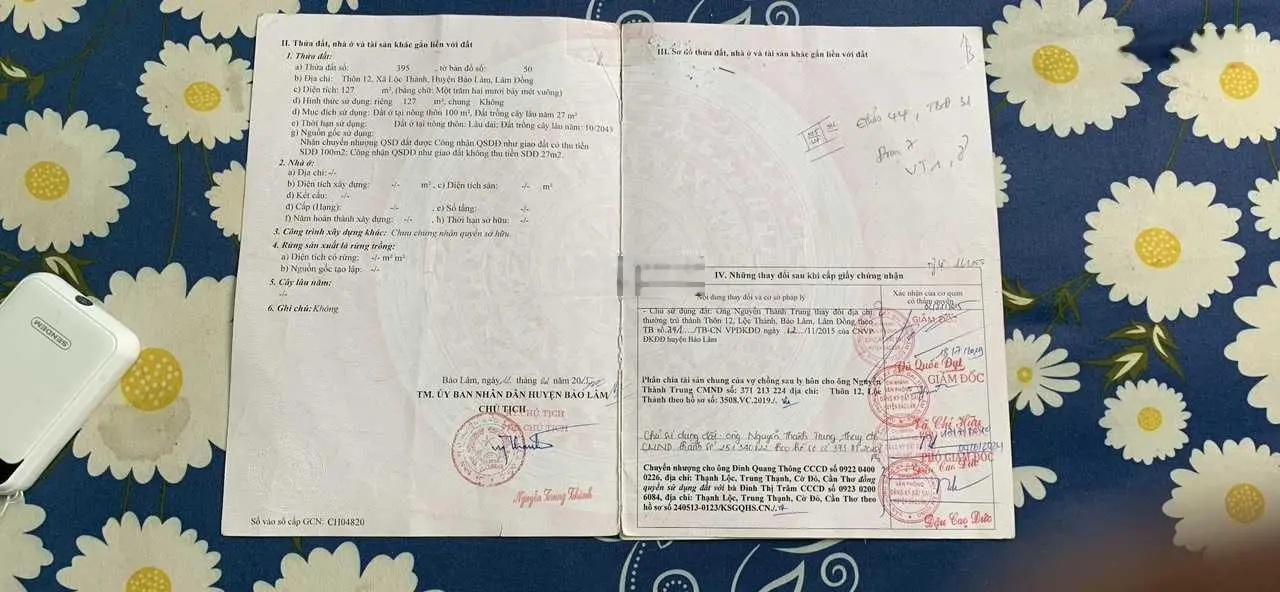 II. Thửa đất, nhà ở và tài sản khác gắn liền với đất
1. Thửa đất:
a) Thửa đất số: 395 , tờ bản đồ số: 50
b) Địa chỉ: Thôn 12, Xã Lộc Thành, Huyện Bảo Lâm, Lâm Đồng
c) Diện tích: 127 m², (bằng chữ: Một trăm hai mươi bảy mét vuông)
d) Hình thức sử dụng: riêng 127 m², chung Không
đ) Mục đích sử dụng: Đất ở tại nông thôn 100 m², Đất trồng cây lâu năm 27 m²
e) Thời hạn sử dụng: Đất ở tại nông thôn: Lâu dài; Đất trồng cây lâu năm: 10/2043
g) Nguồn gốc sử dụng:
Nhận chuyển nhượng QSD đất được Công nhận QSDĐ như giao đất có thu tiền
SDĐ 100m2; Công nhận QSDĐ như giao đất không thu tiền SDĐ 27m2.
2. Nhà ở:
a) Địa chỉ: -/-
b) Diện tích xây dựng: -/- m² , c) Diện tích sàn: -/- m²
d) Kết cấu: -/-
đ) Cấp (Hạng): -/- , e) Số tầng: -/-
f) Năm hoàn thành xây dựng: -/- , h) Thời hạn sở hữu: -/-
3. Công trình xây dựng khác: Chưa chứng nhận quyền sở hữu.
4. Rừng sản xuất là rừng trồng:
a) Diện tích có rừng: -/- m² m²
b) Nguồn gốc tạo lập: -/-
5. Cây lâu năm:
-/-
6. Ghi chú: Không
Bảo Lâm, ngày tháng năm
TM. ỦY BAN NHÂN DÂN HUYỆN BẢO LÂM
CHỦ TỊCH
Nguyễn Trung Thành
Số vào sổ cấp GCN: CH04820
III. Sơ đồ thửa đất, nhà ở và tài sản khác gắn liền với đất
IV. Những thay đổi sau khi cấp giấy chứng nhận
Nội dung thay đổi và cơ sở pháp lý
Xác nhận của cơ quan
có thẩm quyền
- Chủ sử dụng đất: Ông Nguyễn Thành Trung thay đổi địa chỉ
thường trú thành Thôn 12, Lộc Thành, Bảo Lâm, Lâm Đồng theo
TB số /TB-CN VPĐKĐĐ ngày 12 /11/2015 của CNVP
ĐKĐĐ huyện Bảo Lâm
GIÁM ĐỐC
18/7/2019
Phân chia tài sản chung của vợ chồng sau ly hôn cho ông Nguyễn
Thành Trung CMND số: 371 213 224 địa chỉ: Thôn 12, Lộc
Thành theo hồ sơ số: 3508.VC.2019./.
GIÁM ĐỐC
Chủ sử dụng đất: ông Nguyễn Thành Trung thay đổi
CMND thành số
PHÓ GIÁM ĐỐC
Chuyển nhượng cho ông Đinh Quang Thông CCCD số 0922 0400
0226, địa chỉ: Thạnh Lộc, Trung Thạnh, Cờ Đỏ, Cần Thơ đồng
quyền sử dụng đất với bà Đinh Thị Trâm CCCD số 0923 0200
6084, địa chỉ: Thạnh Lộc, Trung Thạnh, Cờ Đỏ, Cần Thơ theo
hồ sơ số 240513-0123/KSGQHS.CN./.
Đậu Cao Đức
SENDEM